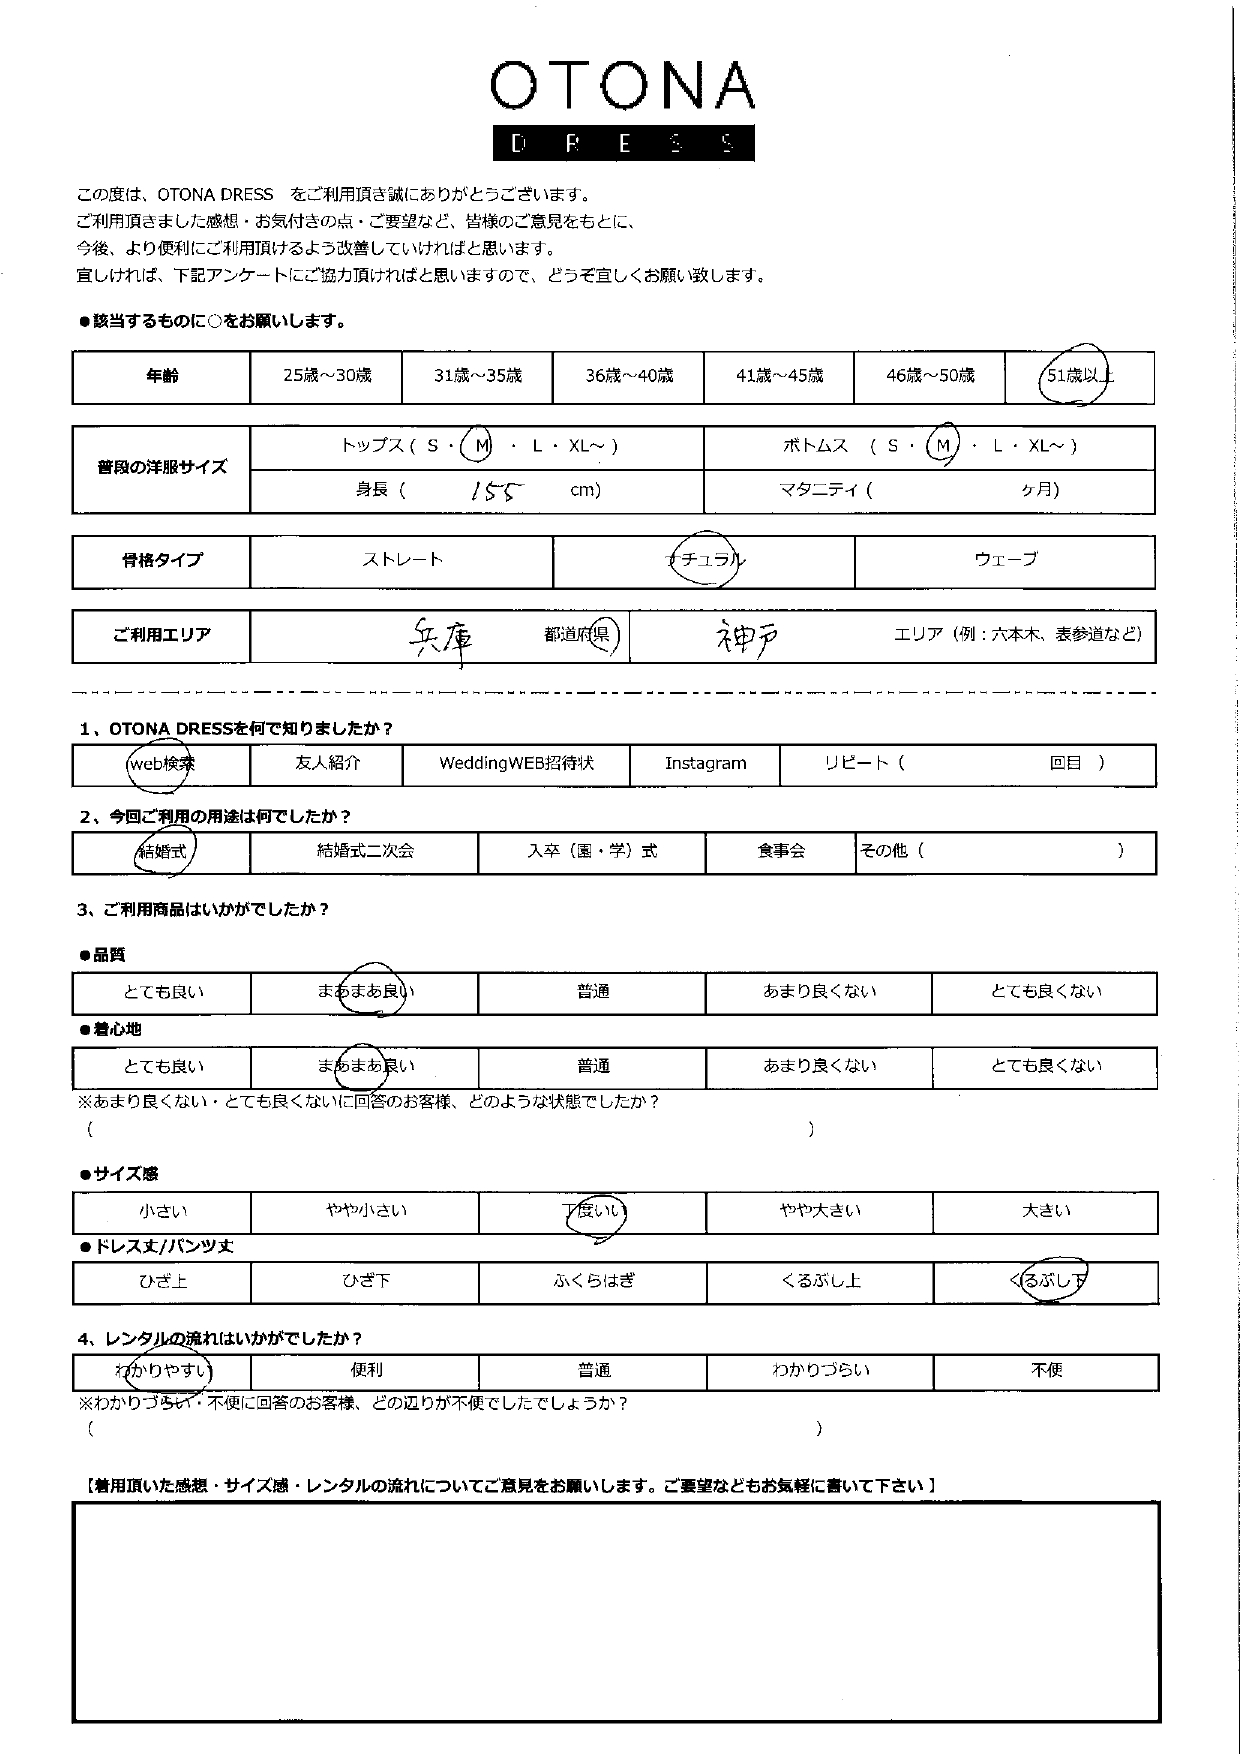 OTONA
DRESS
この度は、OTONA DRESS　をご利用頂き誠にありがとうございます。
ご利用頂きました感想・お気付きの点・ご要望など、皆様のご意見をもとに、
今後、より便利にご利用頂けるよう改善していければと思います。
宜しければ、下記アンケートにご協力頂ければと思いますので、どうぞ宜しくお願い致します。
●該当するものに○をお願いします。
年齢 25歳～30歳 31歳～35歳 36歳～40歳 41歳～45歳 46歳～50歳 51歳以上
普段の洋服サイズ トップス ( S ・ M ・ L ・ XL～ ) ボトムス ( S ・ M ・ L ・ XL～ )
身長 ( 155 cm) マタニティ ( ヶ月)
骨格タイプ ストレート ナチュラル ウェーブ
ご利用エリア 兵庫 都道府県 神戸 エリア（例：六本木、表参道など）
1、OTONA DRESSを何で知りましたか？
web検索 友人紹介 WeddingWEB招待状 Instagram リピート ( 回目 )
2、今回ご利用の用途は何でしたか？
結婚式 結婚式二次会 入卒（園・学）式 食事会 その他 ( )
3、ご利用商品はいかがでしたか？
●品質
とても良い まあまあ良い 普通 あまり良くない とても良くない
●着心地
とても良い まあまあ良い 普通 あまり良くない とても良くない
※あまり良くない・とても良くないに回答のお客様、どのような状態でしたか？
( )
●サイズ感
小さい やや小さい 丁度いい やや大きい 大きい
●ドレス丈/パンツ丈
ひざ上 ひざ下 ふくらはぎ くるぶし上 くるぶし下
4、レンタルの流れはいかがでしたか？
わかりやすい 便利 普通 わかりづらい 不便
※わかりづらい・不便に回答のお客様、どの辺りが不便でしたでしょうか？
( )
【着用頂いた感想・サイズ感・レンタルの流れについてご意見をお願いします。ご要望などもお気軽に書いて下さい】